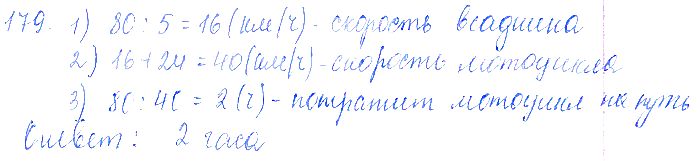 179. 1) 80 : 5 = 16 (км/ч) - скорость всадника
2) 16 + 24 = 40 (км/ч) - скорость мотоцикла
3) 80 : 40 = 2 (ч) - потратит мотоцикл на путь
Ответ: 2 часа